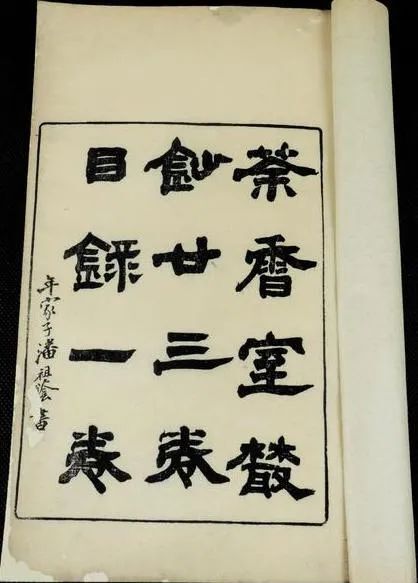 茶香室叢
鈔廿三卷
目錄一卷
年家子潘祖蔭書